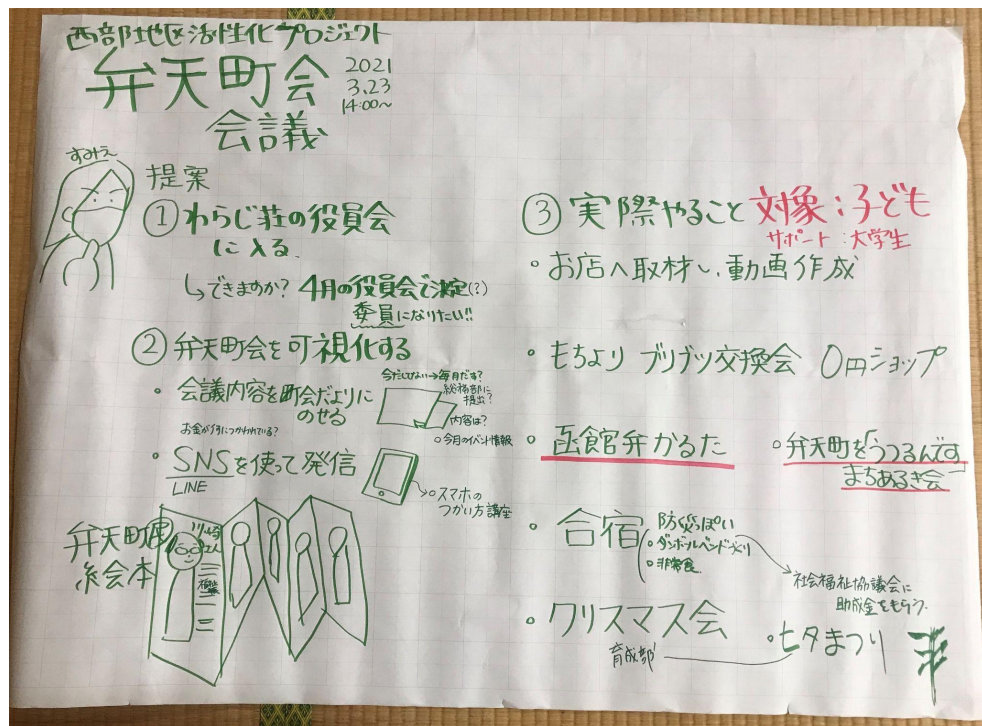 西部地区活性化プロジェクト
弁天町会
会議
2021
3.23
14:00〜
すみえ
提案
① わらじ荘の役員会
に入る
↳できますか? 4月の役員会で決定(?)
委員になりたい!!
② 弁天町会を可視化する
・会議内容を町会だよりに
のせる
お金が何につかわれている?
今だしてない→毎月だす?
総務部に
提出?
内容は?
○今月のイベント情報
・SNSを使って発信
LINE
→○スマホの
つかい方講座
弁天町民
絵本
③ 実際やること 対象:子ども
サポート:大学生
・お店へ取材し、動画作成
・もちよりブツブツ交換会 0円ショップ
・函館弁かるた
・弁天町を「うつるんです」
まちあるき会
・合宿
防災ぽい
・ダンボールベッドづくり
・非常食
社会福祉協議会に
助成金をもらう
・クリスマス会
育成部
・七夕まつり